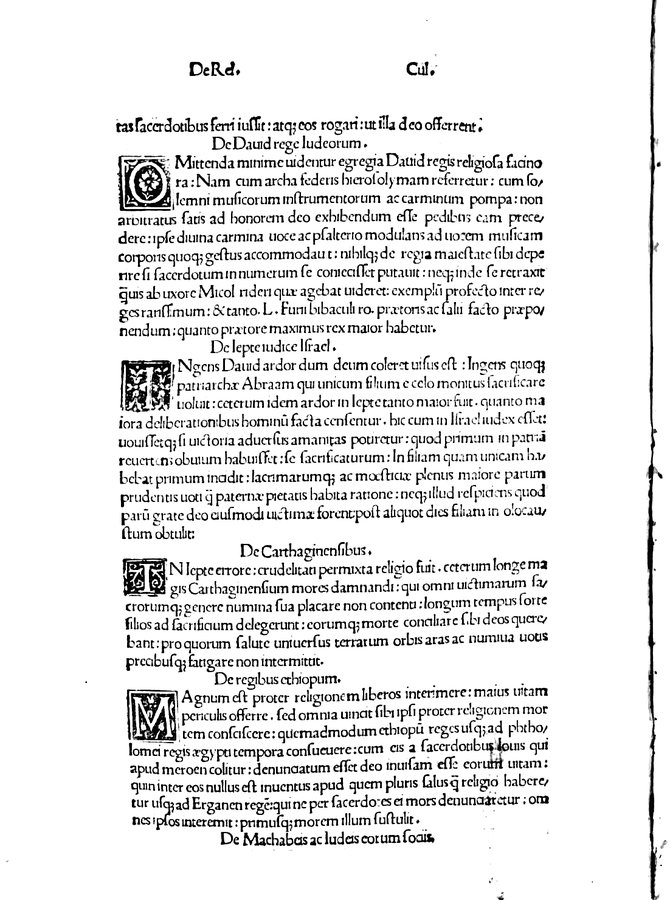 De Rel. Cul.
tas sacerdotibus ferri iussit : atq; eos rogari : ut illa deo offerrent.
De Dauid rege Iudeorum.
OMittenda minime uidentur egregia Dauid regis religiosa facino
ra : Nam cum archa federis hierosolymam referretur : cum so/
lemni musicorum instrumentorum ac carminum pompa : non
arbitratus satis ad honorem deo exhibendum esse pedibus eam prece/
dere : ipse diuina carmina uoce ac psalterio modulans ad uocem musicam
corporis quoq; gestus accommodauit : nihilq; de regia maiestate sibi depe
rire si sacerdotum in numerum se coniecisset putauit : neq; inde se retraxit
q̃uis ab uxore Micol rideri quæ agebat uideret : exemplũ profecto inter re/
ges rarissimum : & tanto . L . Furii bibaculi ro . prætoris ac salii facto præpo/
nendum : quanto prætore maximus rex maior habetur.
De Iepte iudice Israel.
INgens Dauid ardor dum deum coleret uisus est : Ingens quoq;
patriarchæ Abraam qui unicum filium e celo monitus sacrificare
uoluit : ceterum idem ardor in Iepte tanto maior fuit . quanto ma
iora deliberationibus hominũ facta censentur . hic cum in Israel iudex esset :
uouissetq; si uictoria aduersus amanitas potiretur : quod primum in patriã
reuertens obuium habuisset : se sacrificaturum : In filiam quam unicam ha/
bebat primum incidit : lacrimarumq; ac mœsticiæ plenus maiore parum
prudentis uoti q̃ paternæ pietatis habita ratione : neq; illud respiciens quod
parũ grate deo eiusmodi uictimæ forent post aliquot dies filiam in olocau/
stum obtulit :
De Carthaginensibus.
IN Iepte errore : crudelitati permixta religio fuit . ceterum longe ma
gis Carthaginensium mores damnandi : qui omni uictimarum sa/
crorumq; genere numina sua placare non contenti : longum tempus sorte
filios ad sacrificium delegerunt : eorumq; morte conciliare sibi deos quere/
bant : pro quorum salute uniuersus terrarum orbis aras ac numina uotis
precibusq; fatigare non intermittit.
De regibus ethiopum.
MAgnum est propter religionem liberos interimere : maius uitam
periculis offerre . sed omnia uincit sibi ipsi propter religionem mor
tem consciscere : quemadmodum ethiopũ reges usq; ad phtho/
lomei regis ægypti tempora consueuere : cum eis a sacerdotibus Iouis qui
apud meroen colitur : denunciatum esset deo inuisam esse eorum uitam :
quin inter eos nullus est inuentus apud quem pluris salus q̃ religio habere/
tur usq; ad Erganen regẽ : qui ne per sacerdotes ei mors denunciaretur : om
nes ipsos interemit : primusq; morem illum sustulit.
De Machabeis ac Iudeis eorum sociis.